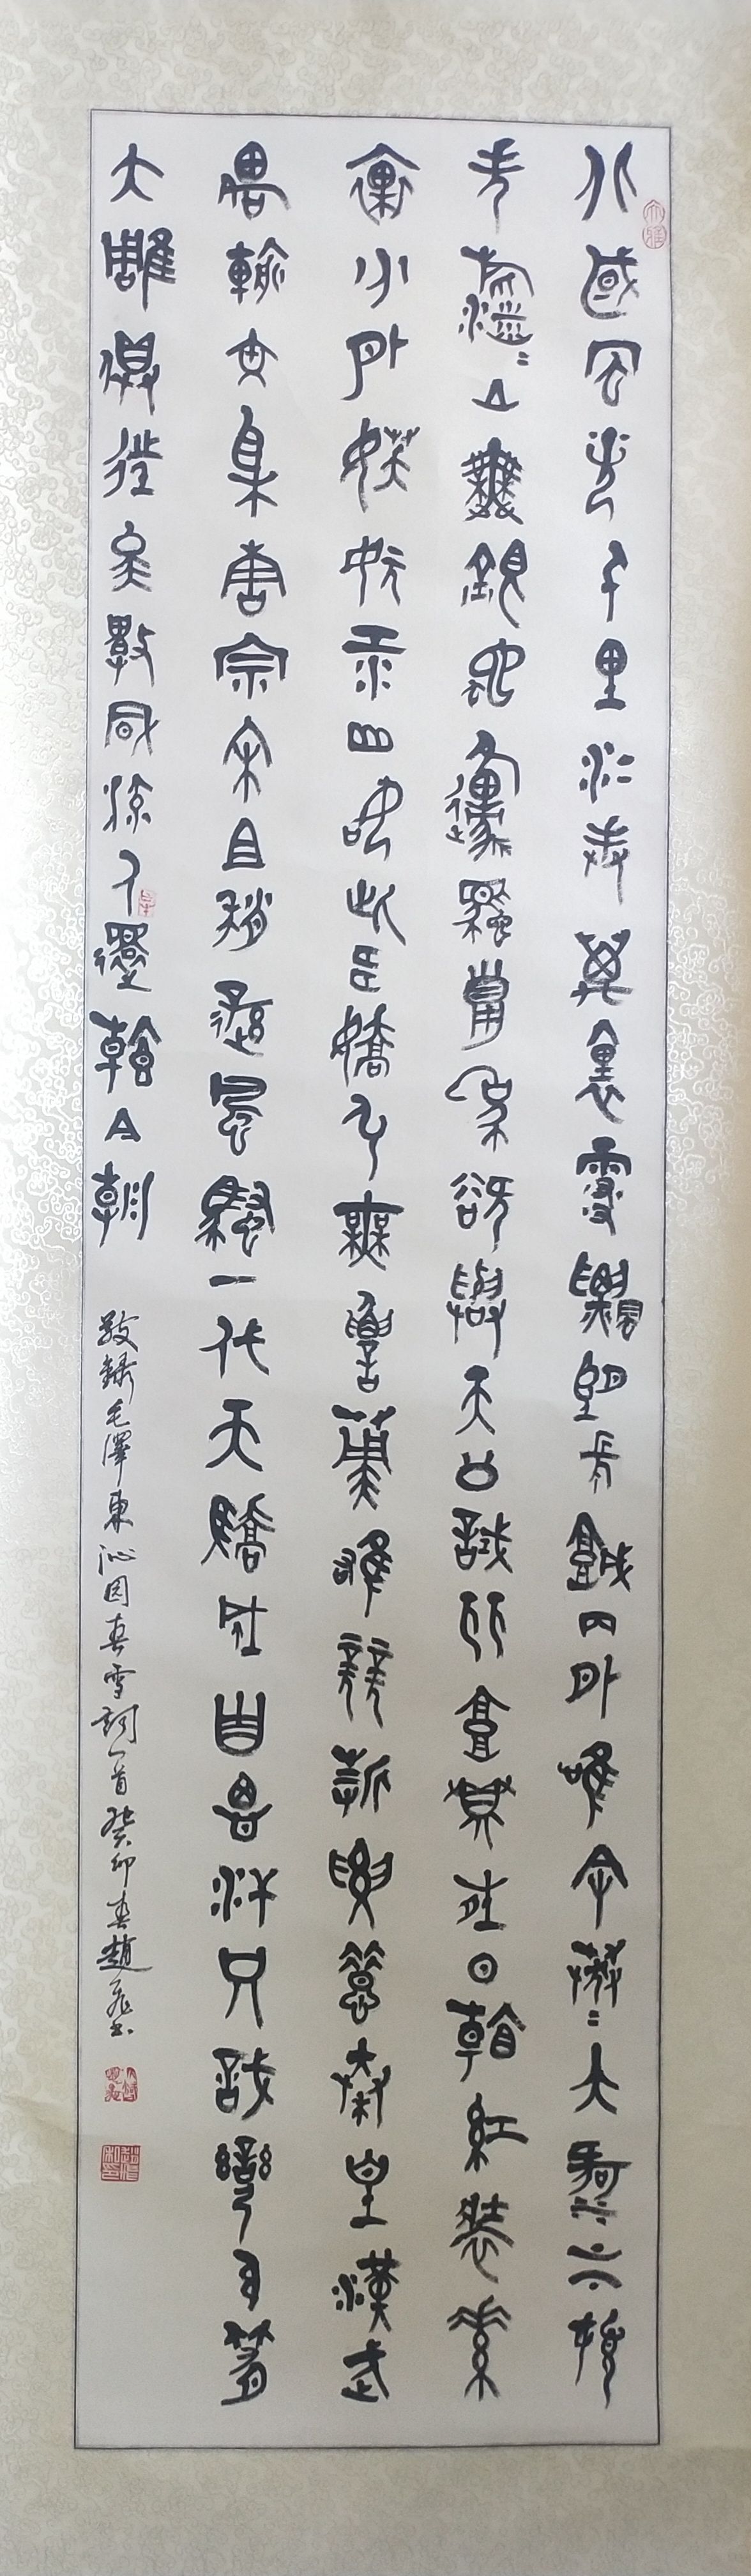 北國風光千里冰封萬里雪飄望長城内外唯余莽〻大河上下頓
失滔〻山舞銀蛇原馳蠟象欲與天公試比高須晴日看紅裝素
裹分外妖嬈江山如此多嬌引無數英雄競折腰惜秦皇漢武
略輸文采唐宗宋且稍遜風騷一代天驕成吉思汗只識彎弓射
大雕俱往矣數風流人還看今朝
敬錄毛澤東沁园春雪詞一首癸卯春趙書